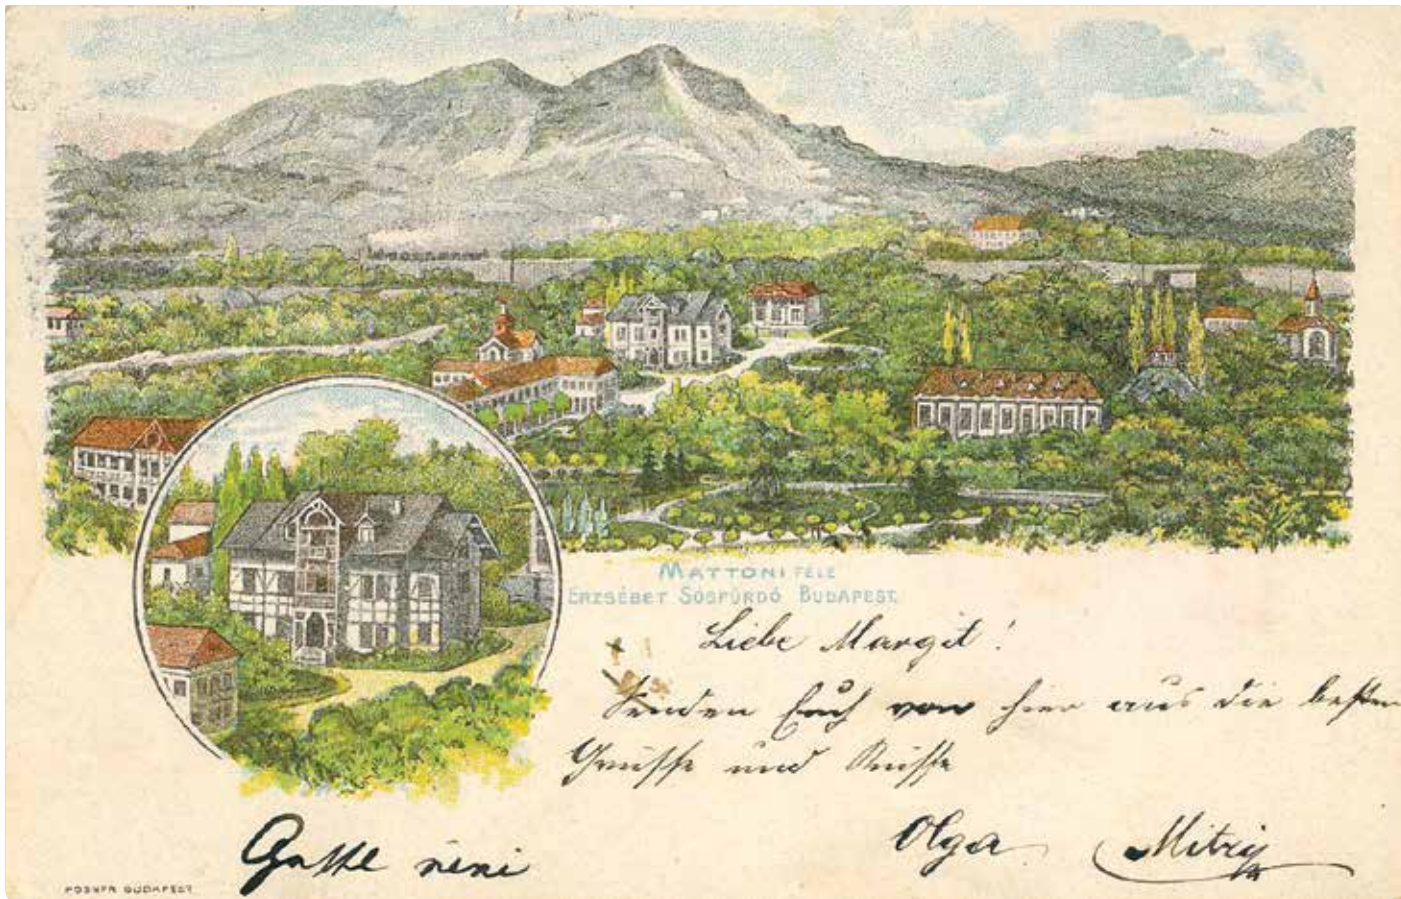 MATTONI FÉLE
ERZSÉBET SÓSFÜRDŐ BUDAPEST.
Liebe Margit!
Senden Euch von hier aus die besten
Grüsse und Küsse
Olga
néni
POSNER BUDAPEST